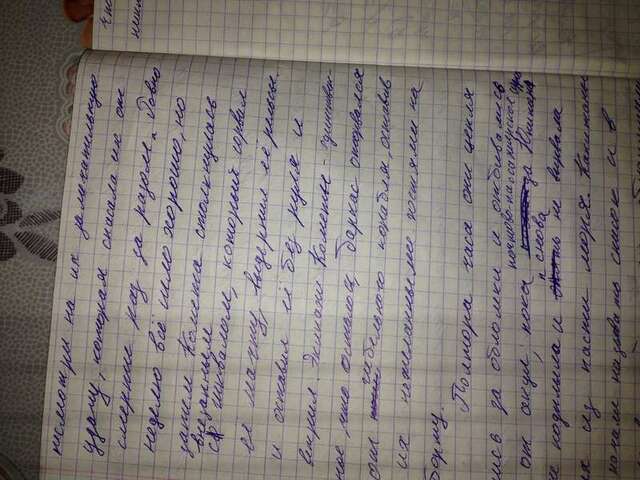 несмотря на их замечательную
удачу, которая спасала их от
смерти раз за разом. Ровно
неделю всё шло хорошо, но
затем Комета столкнулась
внезапным
со шквалом, который сорвал
её мачту, выдернил её рельсы
и оставил её без руля и
ветрил. Экипаж Кометы - единствен-
ное, что осталось, баркас оторвался
от гибельного корабля, оставив
их нежеланными гостями на
борту.
Полтора часа они цепля
лись за обломки и отбивались
почтово-пассажирское
от акул, пока Юнипа
снова
не подплыла и не вырвала
их из пасти моря. Капитаны
начали называть список и в